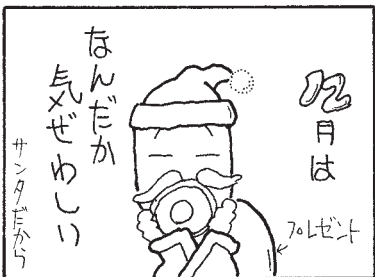 12月は
なんだか
気ぜわしい
サンタだから
プレゼント